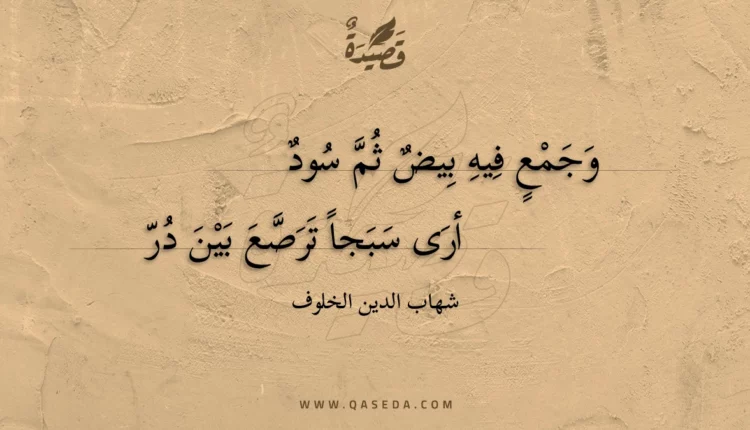 قَصِيدَةٌ
وَجَمْعٍ فِيهِ بِيضٌ ثُمَّ سُودٌ
أرَى سَبَجاً تَرَصَّعَ بَيْنَ دُرّ
شهاب الدين الخلوف
WWW.QASEDA.COM